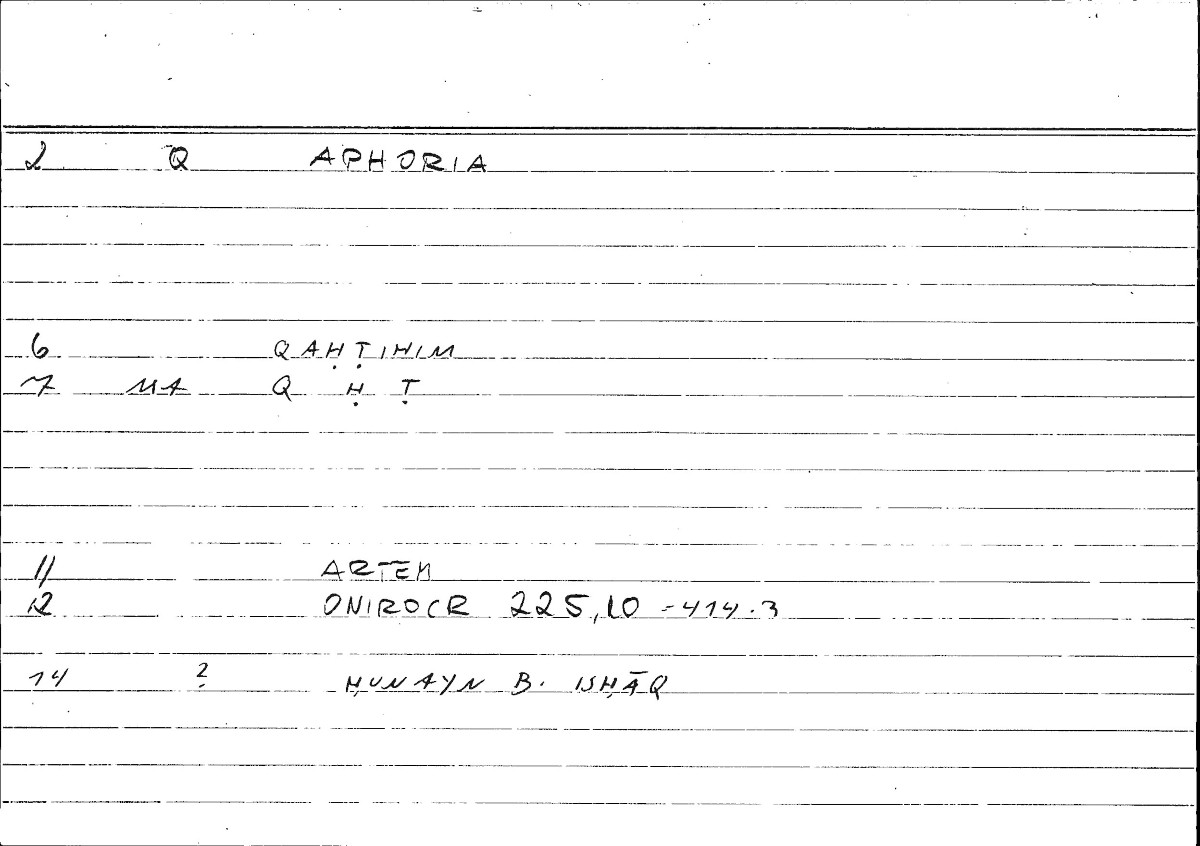 2 Q APHORIA
6 QAḤṬIHIM
7 MA Q Ḥ Ṭ
11 ARTEM
12 ONIROCR 225,10 - 414.3
14 ? ḤUNAYN B. ISḤĀQ